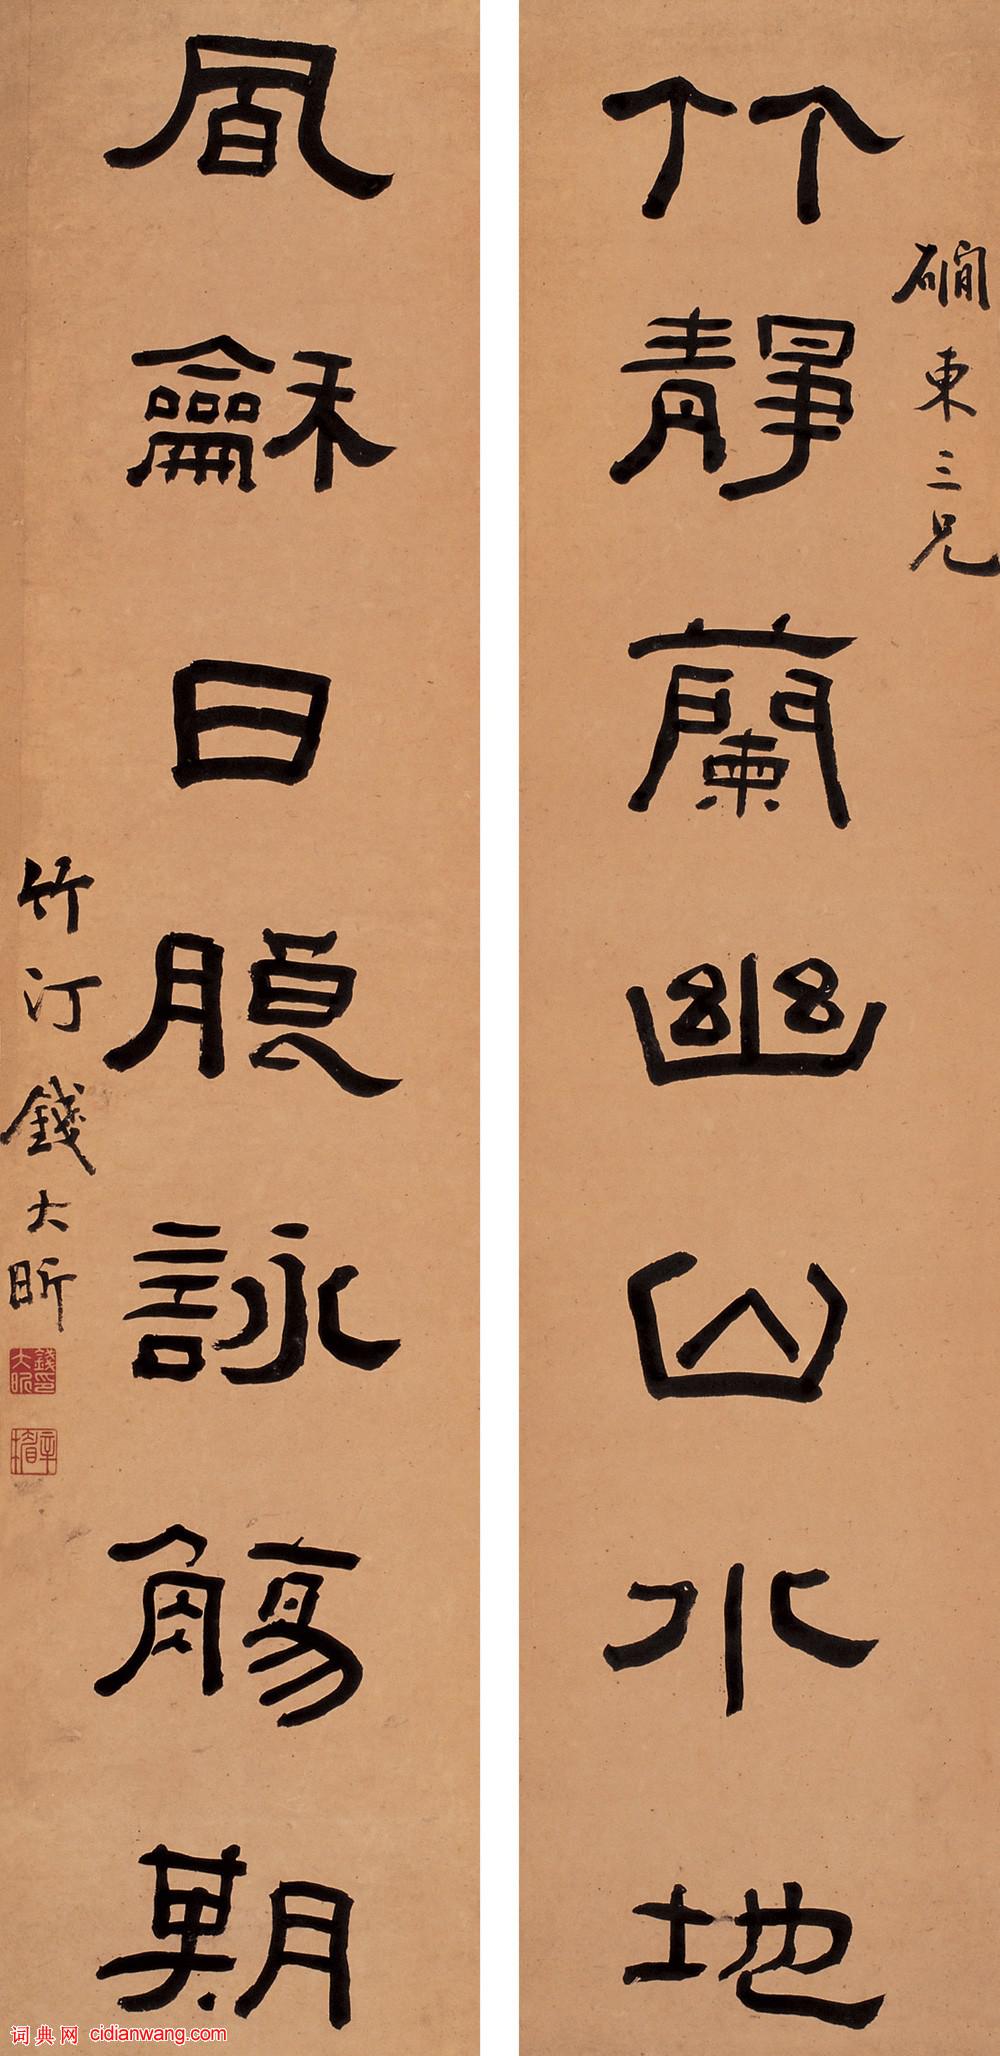 磵東三兄
竹靜蘭幽山水地
風龢日朖詠觴期
竹汀錢大昕
錢大昕印
辛楣
词典网 cidianwang.com